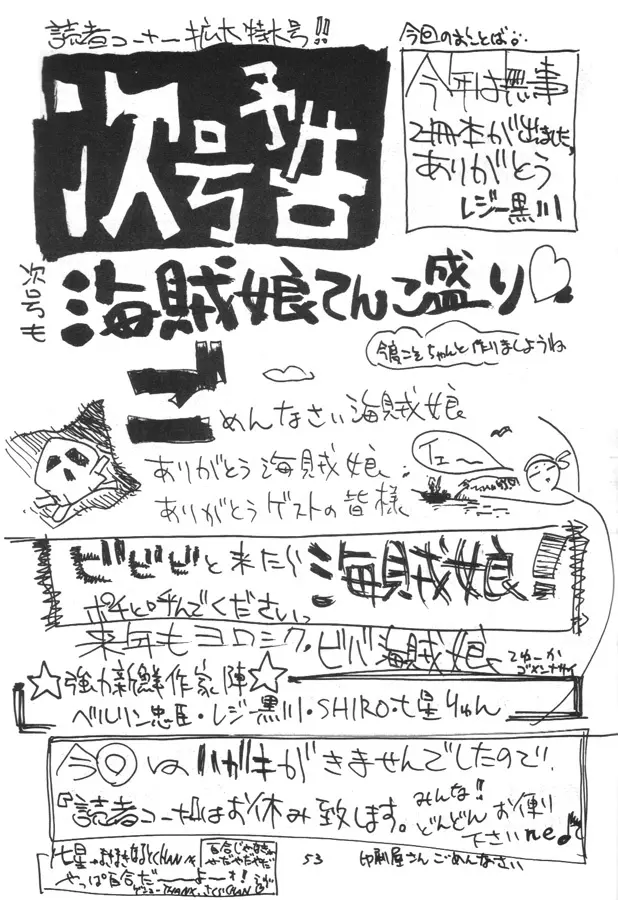 読者コーナー拡大特大号!!
次号予告
今回のまことば。
今年は無事
2冊本が出ました。
ありがとう
レジー黒川
次号も
海賊娘てんこ盛り♡
今度こそちゃんと作りましょうね
ごめんなさい海賊娘
ありがとう海賊娘
ありがとうゲストの皆様
イェー
ビビビと来たら海賊娘!
ポチと呼んでください。
来年もヨロシク。ビバ海賊娘。
てゆーか
ゴメンナサイ
☆強力新鮮作家陣☆
ベルリン忠臣・レジー黒川・SHIRO・七星りゅん
今回はハガキがきませんでしたので、
『読者コーナー』はお休み致します。
みんな!!
どんどんお便り
下さいne♪
やっぱ百合だーーよーォ!
53
印刷屋さんごめんなさい